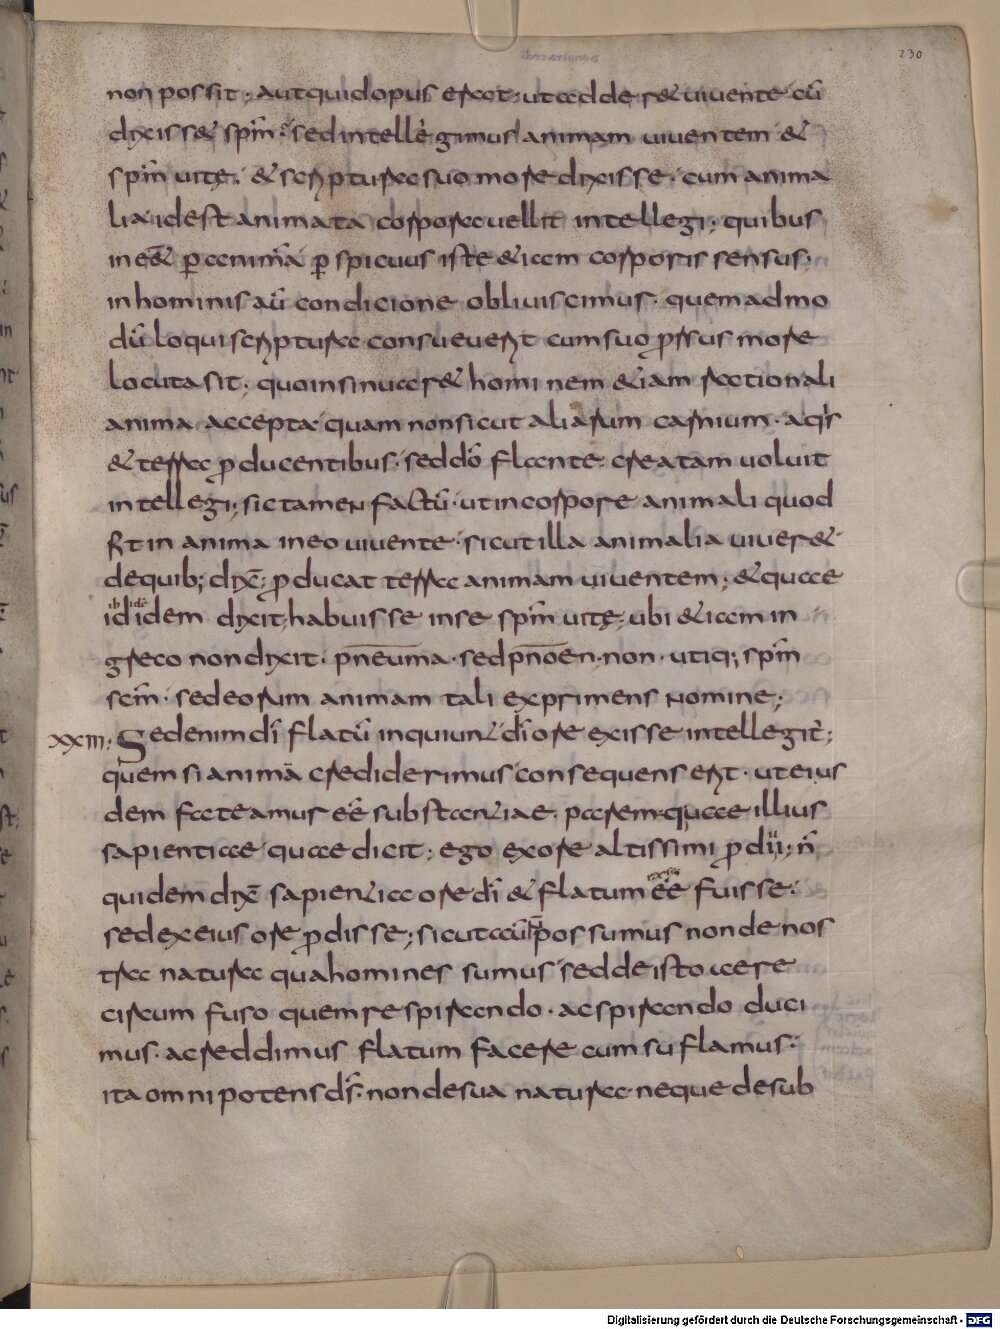 230
non possit; aut quid opus erat; ut adderet vivente cū
dixisset spm̄; sed intellegimus animam viventem &
spm̄ vitę; & scriptura suo more dixisse; cum anima
lia idest animata corpora vellit intellegi; quibus
ine& p animā pspicuus iste &iam corporis sensus.
in hominis aū condicione obliviscimur. quemadmo
dū loqui scriptura consueverit cum suo prsus more
locuta sit; quo insinuar& hominem &iam rationali
anima accepta quam non sicut aliarum carnium. aqis
& terra producentibus. sed dō flante creatam voluit
intellegi; sic tamen factū. ut in corpore animali quod
fit in anima in eo vivente. sicut illa animalia viver&
de quib; dix̄; producat terra animam viventem; & quae
ididem dixit habuisse in se spm̄ vitę; ubi &iam in
greco non dixit. pneuma. sed pnoen. non. utiq; spm̄
scm̄. sed eorum animam tali exprimens nomine;
xxiii; Sed enim dī flatū inquiunt dī ore exisse intellegit;
quem si animā crediderimus consequens erit. ut eius
dem fateamur eē substantiae. parem quae illius
sapientiae quae dicit; ego ex ore altissimi prodii; n̄
quidem dix̄ sapientia ore dī & flatum eē fuisse;
sed ex eius ore prodisse; sicut aū possumus non de nos
tra natura qua homines sumus sed de isto aere
circum fuso quem respirando. ac spirando duci
mus. ac reddimus flatum facere cum suflamus;
ita omnipotens ds. non de sua natura neque de sub
Digitalisierung gefördert durch die Deutsche Forschungsgemeinschaft - DFG